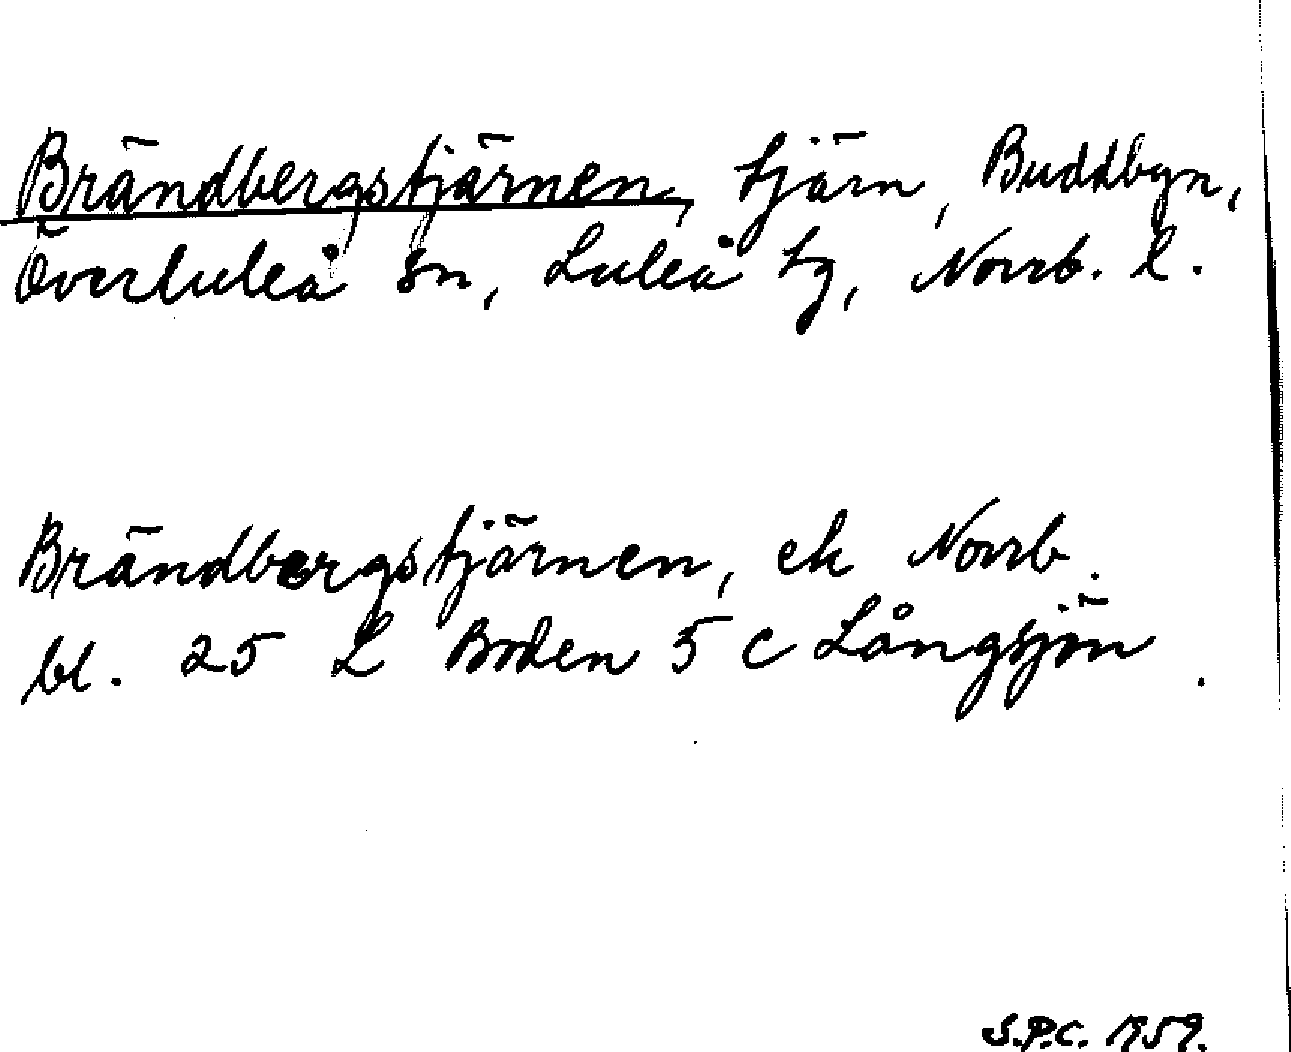 Brändbergstjärnen, tjärn, Buddbyn,
Överluleå sn, Luleå tg, Norrb. l.
Brändbergstjärnen, ek Norrb.
bl. 25 L Boden 5 c Långsjön.
S.P.C. 1959.